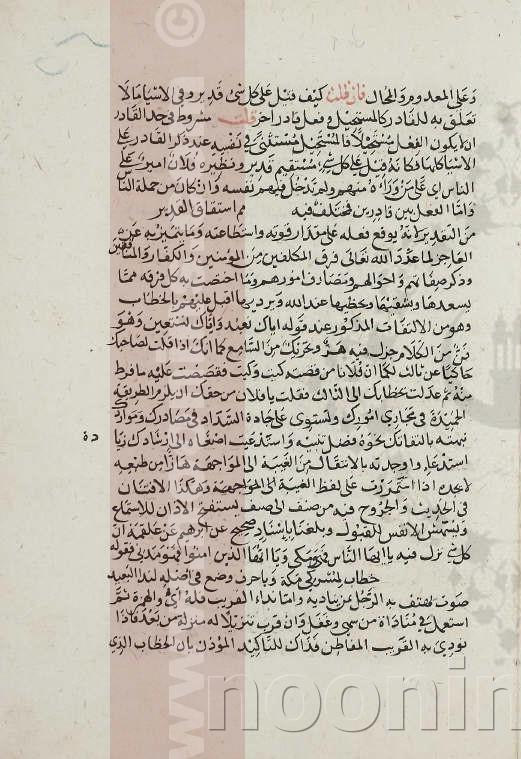 وَعَلى المعدوم والمحال فإن قلت كيف قيل على كل شئ قدير وفي الاشيا ما لا
تعلق به للقادر كالمستحيل وفعل قادر اخر قلت مشروط في حد القادر
ان لا يكون الفعل مستحيلا فالمستحيل مستثنى في نفسه عند ذكر القادر على
الاشيا كلها فكانه قيل على كل شئ مستقيم قدير ونظيره فلان امير على
الناس اى على من وراءه منهم ولم يدخل فيهم نفسه وان كان من جملة الناس
واما الفعل بين قادرين فمختلف فيه مم اشتقاق القدير
من التقدير لانه يوقع فعله على مقدار قوته واستطاعته وما يتميز به عن
العاجز لما عدد الله تعالى فرق المكلفين من المؤمنين والكفار والمنافقين
وذكر صفاتهم واحوالهم ومصارف امورهم وما اختصت به كل فرقه مما
يسعدها ويشقيها ويحظيها عند الله ويرديها اقبل عليهم بالخطاب
وهو من الالتفات المذكور عند قوله اياك نعبد واياك نستعين وهو
فن من الكلام جزل فيه هز وتحريك من السامع كما انك اذا قلت لصاحبك
حاكيا عن ثالث لكما ان فلانا من قصته كيت وكيت فقصصت عليه ما فرط
منه ثم عدلت بخطابك الى الثالث فقلت يا فلان من حقك ان تلزم الطريقة
الحميدة في مجاري امورك وتستوى على جادة السداد في مصادرك ومواردك
نبهته بالتفاتك نحوه فضل تنبيه واستدعيت اصغاه الى ارشادك زيادة
استدعاء واوجدته بالانتقال من الغيبة الى المواجهة هازا من طبعه
لا يجده اذا استمررت على لفظ الغيبة وهكذا الافتنان
في الحديث والخروج فيه من صنف الى صنف يستفتح الاذان للاستماع
ويستهش الانفس للقبول وبلغنا باسناد صحيح عن ابرهيم عن علقمة ان
كل شئ نزل فيه يا ايها الناس فهو مكى ويا ايها الذين امنوا فهو مدنى فقوله
خطاب لمشركى مكة ويا حرف وضع في اصله لندا البعيد
صوت يهتف به الرجل بمن يناديه واما نداء القريب فله اى والهمزة ثم
استعمل في مناداة من سهى وغفل وان قرب تنزيلا له منزلة من بعد فاذا
نودى به القريب المفاطن فذاك للتاكيد الموذن بان الخطاب الذي
www.noonin